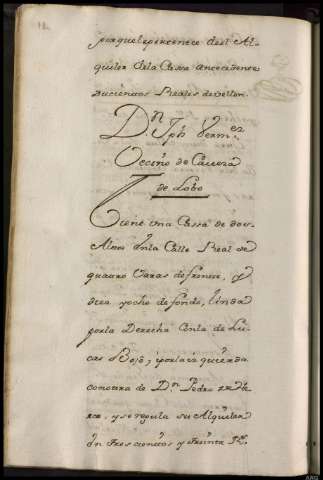 porque le pertenece de el Al-
quiler de la Casa anecedente
Ducientos Reales de vellon.
Dn. Jph Verm.ez
Vecino de Caveza
de Lobo
Tiene una Cassa de dos
Altos en la Calle Real de
quatro Varas de frente, y
diez y ocho de fondo, linda
por la Derecha con la de Lu-
cas Rojo, y por la izquierda
con otra de Dn. Pedro
y se regula su Alquiler
en trescientos y treinta Rs.